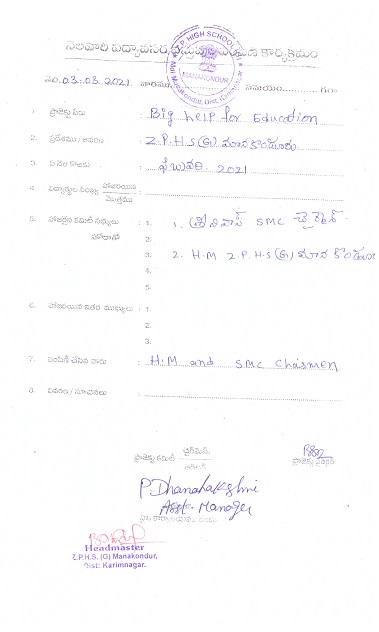 Z.P. HIGH SCHOOL (G)
MANAKONDUR
Mdl: Manakondur, Dist. Karimnagar
నెలవారి విద్యావసర వస్తువుల పంపిణి కార్యక్రమం
తేది. 03.:03. 2021 వారము సమయం గం॥
1. ప్రాజెక్టు పేరు : Big help for Education
2. ప్రదేశము / జనరం : Z.P.H.S (G) మానకొండూరు
3. ఏ నెల కొరకు : ఫిబ్రవరి. 2021
4. విద్యార్థుల సంఖ్య హాజరయిన / మొత్తము :
5. హాజరైన కమిటీ సభ్యులు : 1. 1. శ్రీనివాస్ SMC చైర్మెన్
హోదాతో 2.
3. 2. H.M Z.P.H.S (G) మానకొండూరు
4.
5.
6. హాజరయిన ఇతర ముఖ్యులు : 1.
2.
3.
7. పంపిణీ చేసిన వారు : H.M and SMC Chaismen
8. వివరణ / సూచనలు :
ప్రాజెక్టు కమిటీ చైర్‌మెన్
ప్రాజెక్టు డైరెక్టర్
P Dhanalakshmi
Asst. Manager
Headmaster
Z.P.H.S. (G) Manakondur,
Dist: Karimnagar.